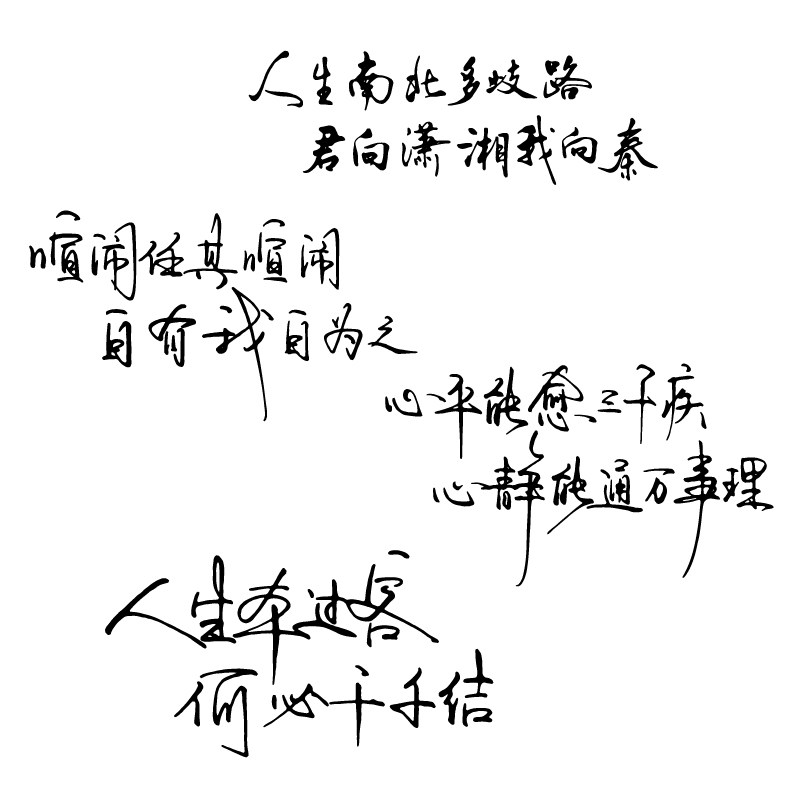 人生南北多歧路
君向潇湘我向秦
喧闹任其喧闹
自有我自为之
心平能愈三千疾
心静能通万事理
人生本过客
何必千千结